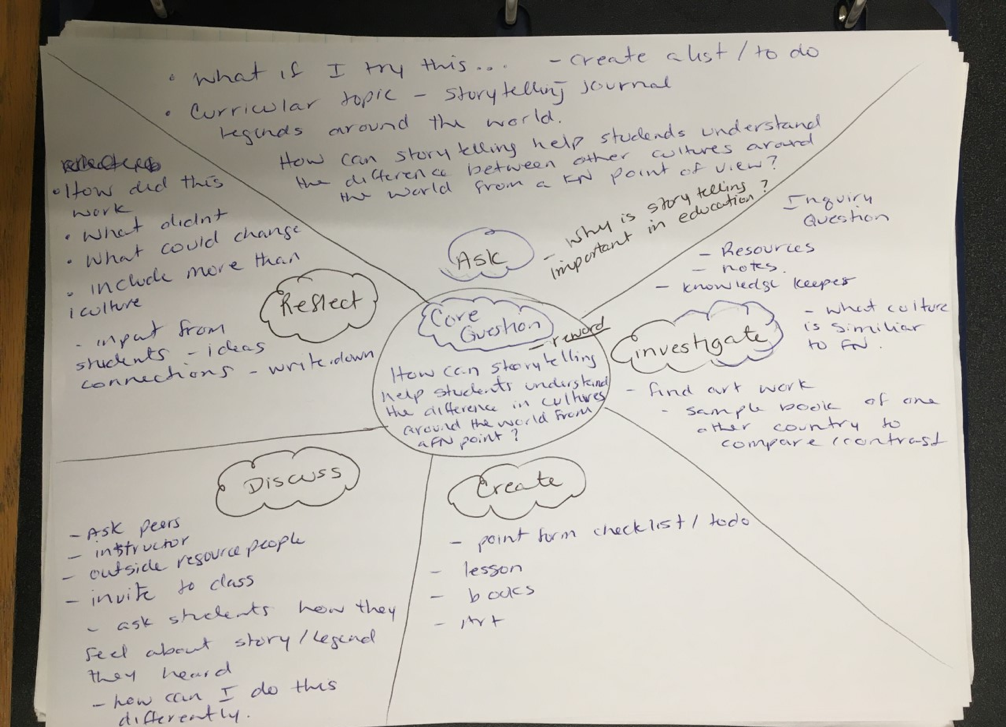 • What if I try this... - create a list / to do
• Curricular topic - Storytelling Journal
legends around the world.
How can storytelling help students understand
the difference between other cultures around
the world from a FN point of view?
Ask
- Why is story telling
important in education?
Inquiry
Question
- Resources
- notes.
- knowledge keeper
investigate
- what culture
is similiar
to FN.
- find art work
- sample book of one
other country to
compare/contrast
Core
Question
- reword
How can storytelling
help students understand
the difference in cultures
around the world from
a FN point?
Create
- point form checklist / todo
- lesson
- books
- Art
Discuss
- Ask peers
- instructor
- outside resource people
- invite to class
- ask students how they
feel about story/legend
they heard
- how can I do this
differently.
Reflect
• How did this
work
• What didnt
• What could change
• include more than
1 culture
- input from
students - ideas
connections - write down